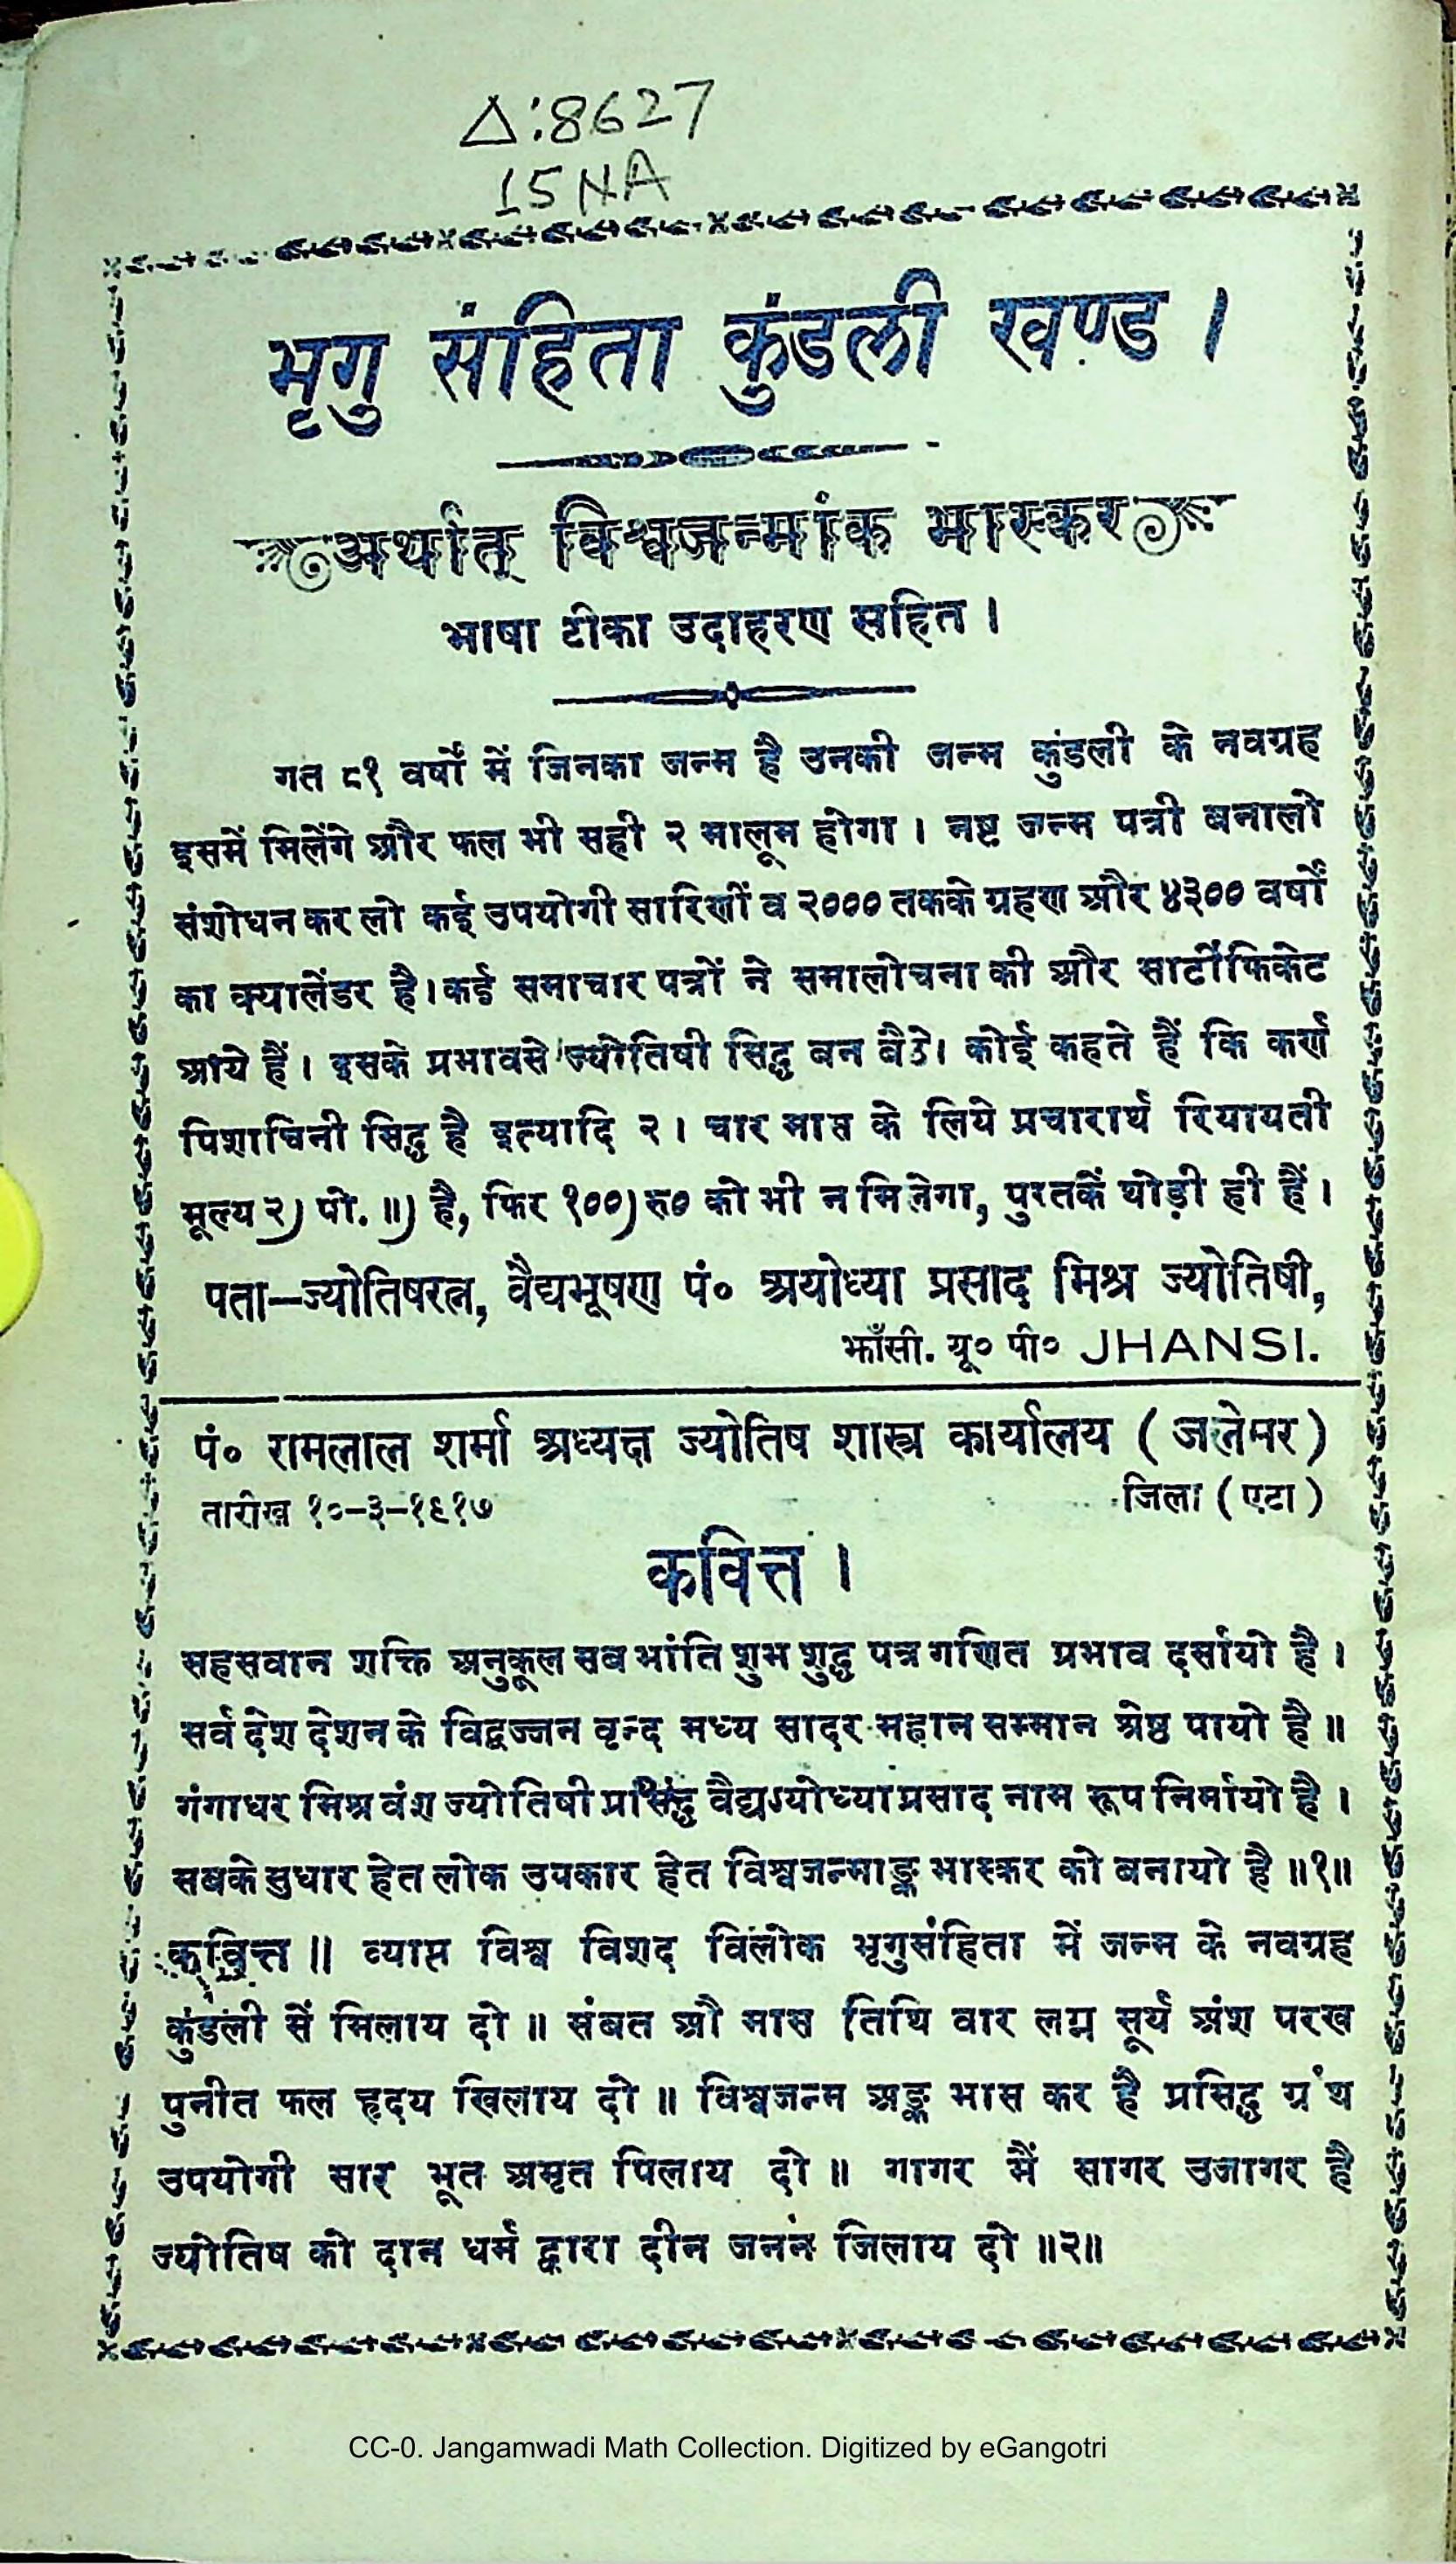 Δ:8627
15NA
भृगु संहिता कुंडली खण्ड ।
अर्थात् विश्वजन्मांक भास्कर
भाषा टीका उदाहरण सहित ।
गत ८१ वर्षों में जिनका जन्म है उनकी जन्म कुंडली के नवग्रह
इसमें मिलेंगे और फल भी सही २ मालूम होगा । नष्ट जन्म पत्री बनालो
संशोधन कर लो कई उपयोगी सारिणीं व २००० तकके ग्रहण और ४३०० वर्षों
का क्यालेंडर है। कई समाचार पत्रों ने समालोचना की और सार्टीफिकेट
आये हैं । इसके प्रभावसे ज्योतिषी सिद्ध बन बैठे। कोई कहते हैं कि कर्ण
पिशाचिनी सिद्ध है इत्यादि २ । चार मास के लिये प्रचारार्थ रियायती
मूल्य २) पो. ॥) है, फिर १००) रु० को भी न मिलेगा, पुस्तकें थोड़ी ही हैं ।
पता—ज्योतिषरत्न, वैद्यभूषण पं० अयोध्या प्रसाद मिश्र ज्योतिषी,
झाँसी. यू० पी० JHANSI.
पं० रामलाल शर्मा अध्यक्ष ज्योतिष शास्त्र कार्यालय ( जलेसर )
तारीख १०-३-१९१७ जिला ( एटा )
कवित्त ।
सहसवान शक्ति अनुकूल सब भांति शुभ शुद्ध पत्र गणित प्रभाव दर्सायो है ।
सर्व देश देशन के विद्वज्जन वृन्द मध्य सादर महान सम्मान श्रेष्ठ पायो है ॥
गंगाधर मिश्र वंश ज्योतिषी प्रसिद्ध वैद्यऽयोध्याप्रसाद नाम रूप निर्मायो है ।
सबके सुधार हेत लोक उपकार हेत विश्वजन्माङ्क भास्कर को बनायो है ॥१॥
कवित्त ॥ व्याप्त विश्व विशद विलोक भृगुसंहिता में जन्म के नवग्रह
कुंडली सें मिलाय दो ॥ संबत औ मास तिथि वार लग्न सूर्य अंश परख
पुनीत फल हृदय खिलाय दो ॥ विश्वजन्म अङ्क भास कर है प्रसिद्ध ग्रंथ
उपयोगी सार भूत अमृत पिलाय दो ॥ गागर मैं सागर उजागर है
ज्योतिष को दान धर्म द्वारा दीन जनन जिलाय दो ॥२॥
CC-0. Jangamwadi Math Collection. Digitized by eGangotri